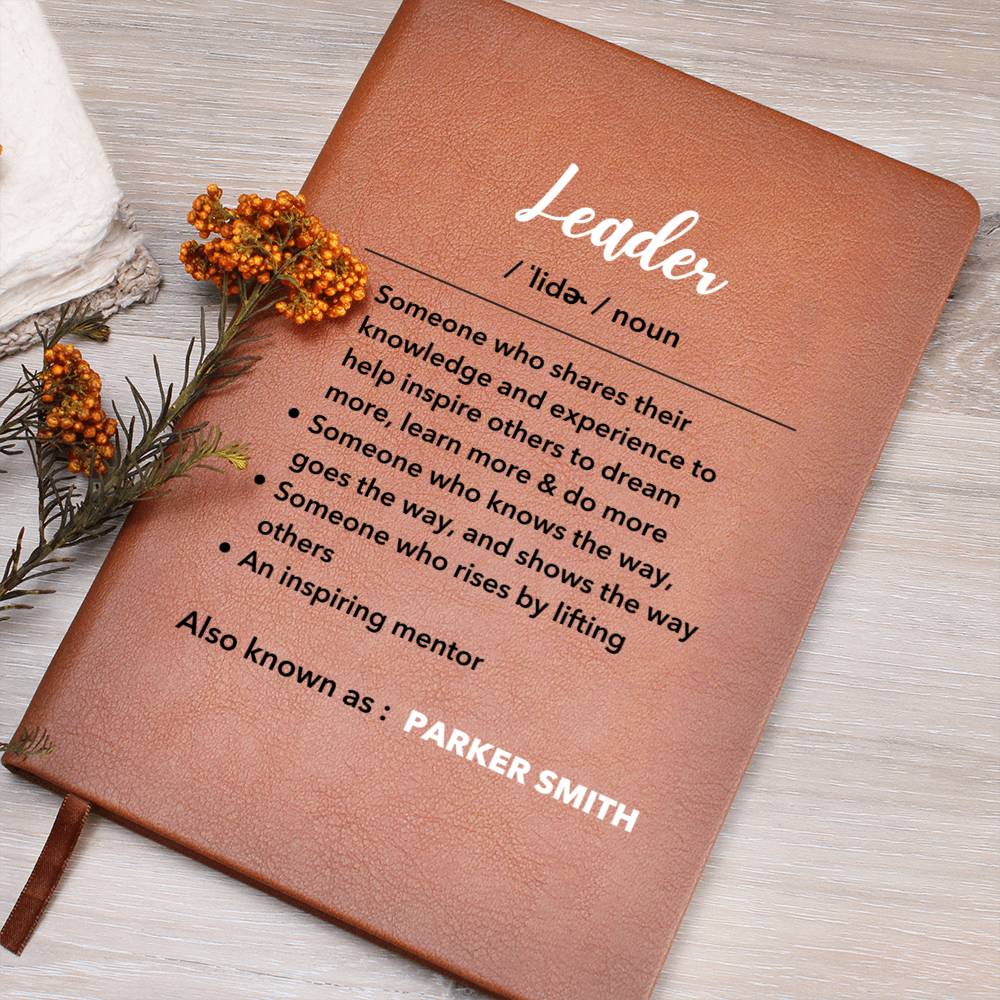 Leader
/ 'lidɚ / noun
Someone who shares their
knowledge and experience to
help inspire others to dream
more, learn more & do more
• Someone who knows the way,
goes the way, and shows the way
• Someone who rises by lifting
others
• An inspiring mentor
Also known as : PARKER SMITH